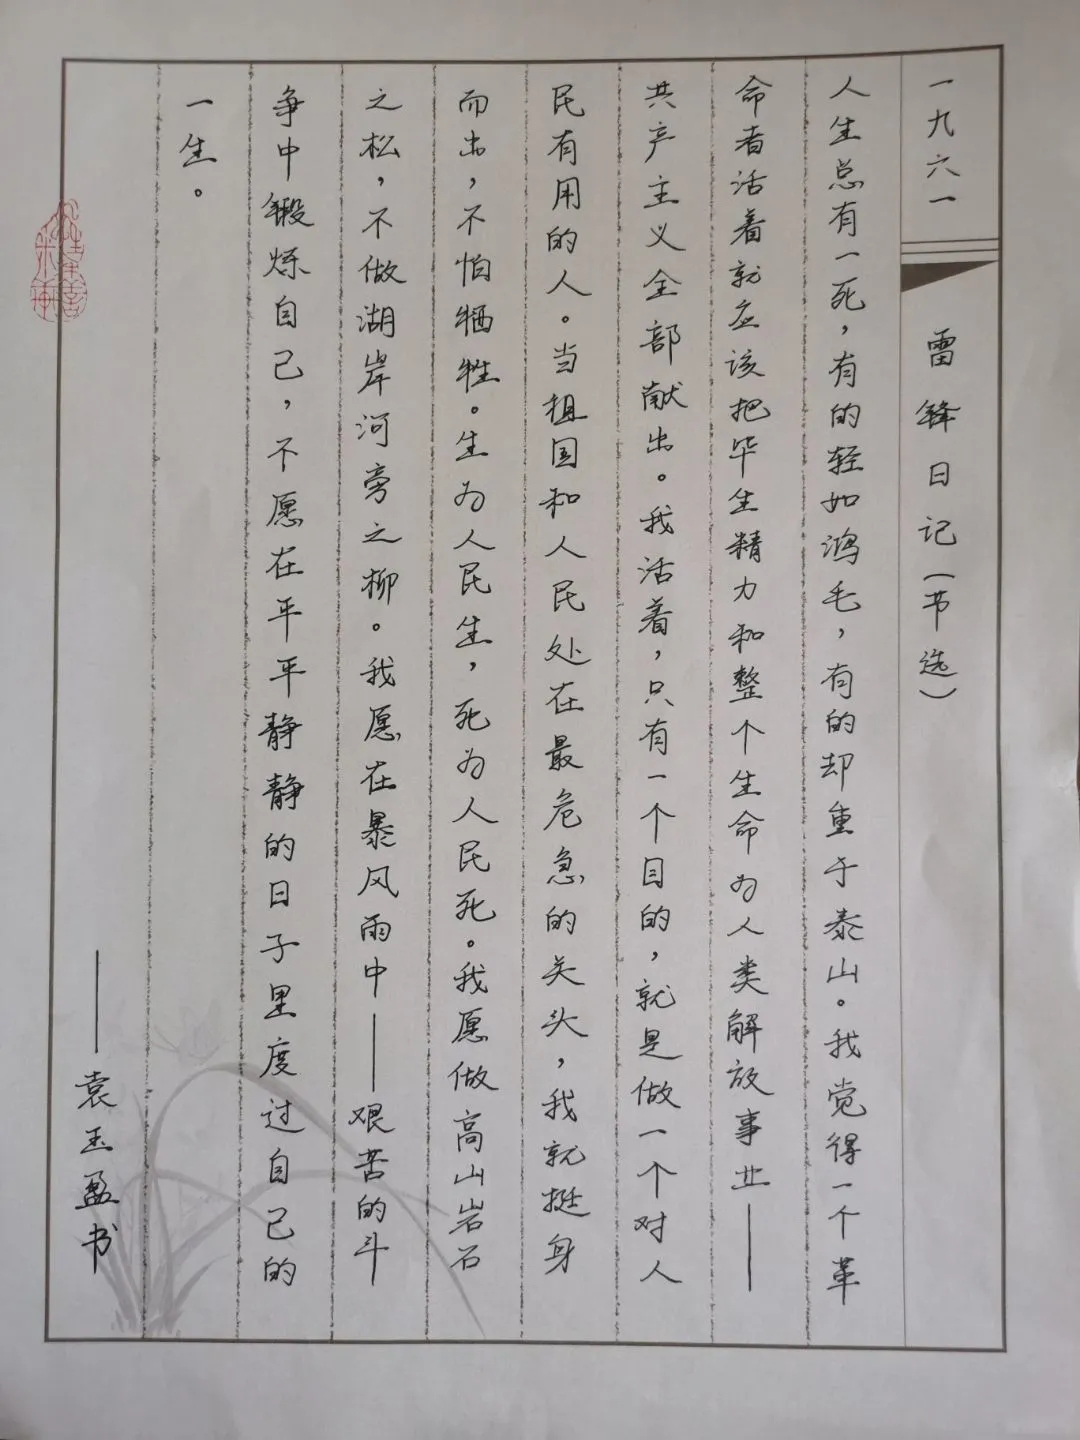 一九六一 雷锋日记（节选）
人生总有一死，有的轻如鸿毛，有的却重于泰山。我觉得一个革
命者活着就应该把毕生精力和整个生命为人类解放事业——
共产主义全部献出。我活着，只有一个目的，就是做一个对人
民有用的人。当祖国和人民处在最危急的关头，我就挺身
而出，不怕牺牲。生为人民生，死为人民死。我愿做高山岩石
之松，不做湖岸河旁之柳。我愿在暴风雨中——艰苦的斗
争中锻炼自己，不愿在平平静静的日子里度过自己的
一生。
——袁玉盈书